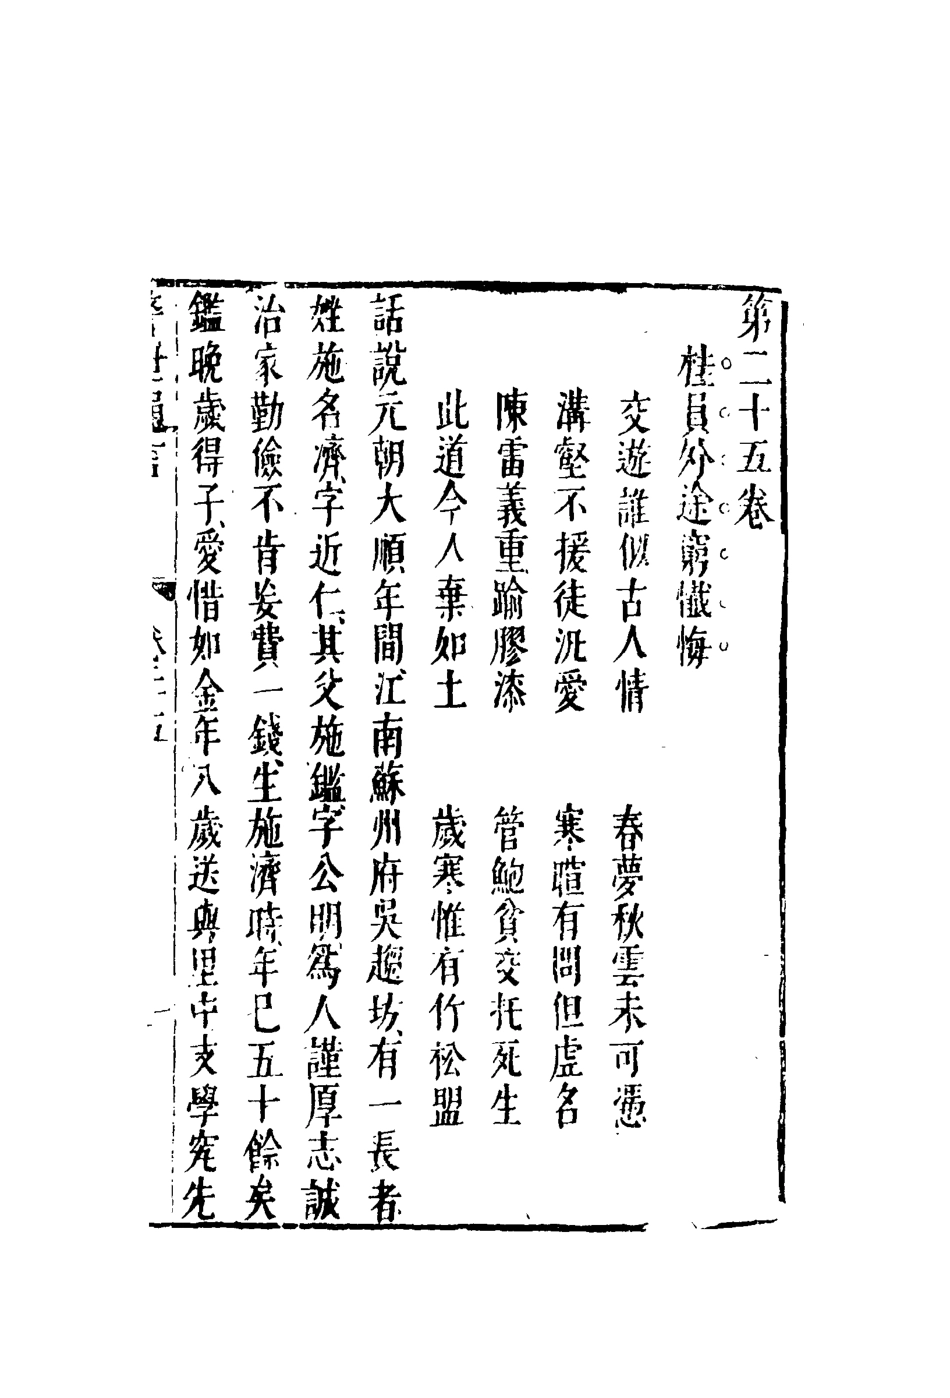 第二十五卷
桂員外途窮懺悔
交遊誰似古人情　春夢秋雲未可憑
溝壑不援徒汎愛　寒暄有問但虛名
陳雷義重踰膠漆　管鮑貧交托死生
此道今人棄如土　歲寒惟有竹松盟
話說元朝大順年間、江南蘇州府吳趨坊、有一長者
姓施名濟、字近仁、其父施鑑、字公明、爲人謹厚志誠
治家勤儉不肯妄費一錢、生施濟時、年巳五十餘矣
鑑晚歲得子、愛惜如金年八歲送與里中支學究先
警世通言　卷二十五　一